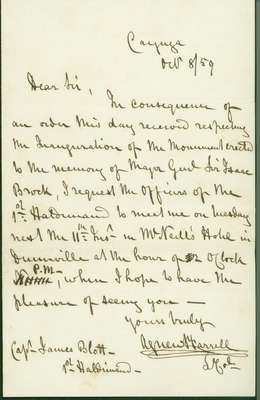 Cayuga
Octr 8/59
Dear Sir,
In consequence of
an order this day received respecting
the Inauguration of the Monument erected
to the memory of Major Genl Sir Isaac
Brock, I request the Officers of the
1st Haldimand to meet me on Tuesday
next the 11th Inst in McNeill's Hotel in
Dunnville at the hour of 2 OClock
P.M., when I hope to have the
pleasure of seeing you —
Yours truly
Agnew Farrell
Lt Col
Captn James Blott
1st Haldimand —